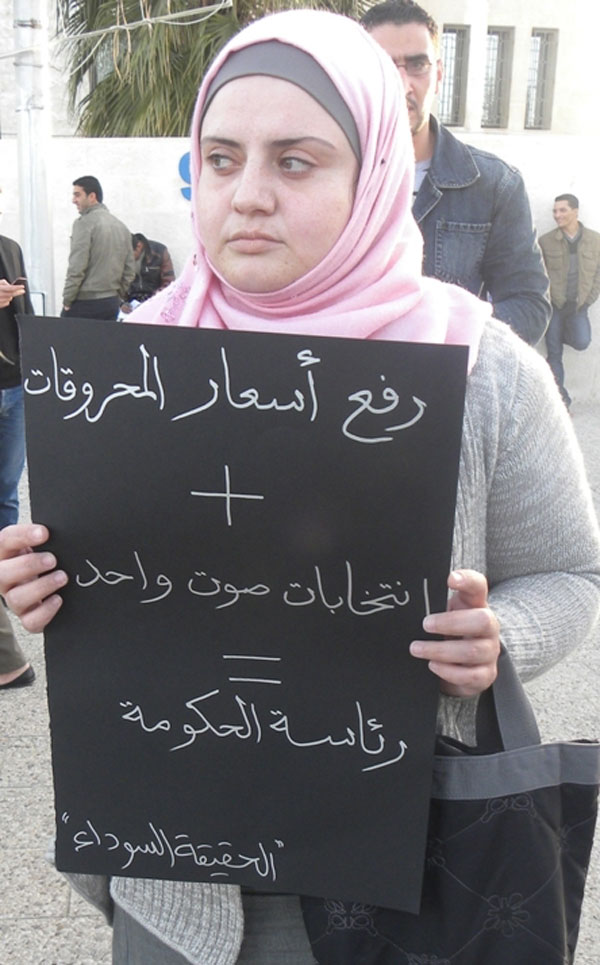 رفع أسعار المحروقات
+
انتخابات صوت واحد
=
رئاسة الحكومة
"الحقيقة السوداء"